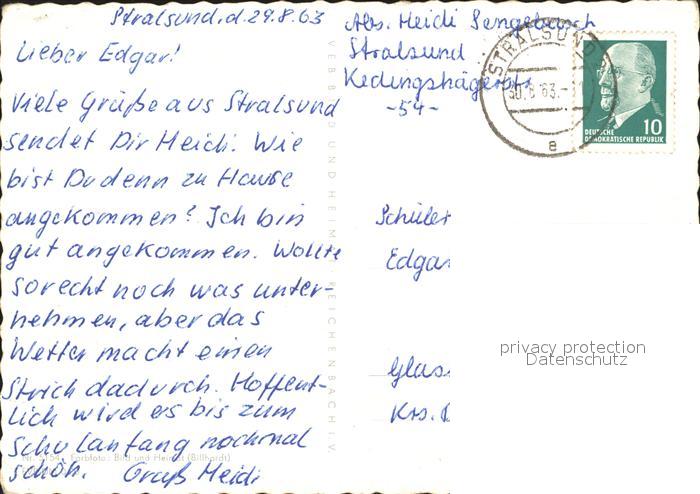 Stralsund, d. 29.8.63
Lieber Edgar!
Viele Grüße aus Stralsund
sendet Dir Heidi. Wie
bist Du denn zu Hause
angekommen? Ich bin
gut angekommen. Wollte
so recht noch was unter-
nehmen, aber das
Wetter macht einen
Strich dadurch. Hoffent-
lich wird es bis zum
Schulanfang nochmal
schön. Gruß Heidi
Farbfoto: Bild und Heimat (Billhardt)
Abs. Heidi
Stralsund
-54-
STRALSUND
63
e
DEUTSCHE
DEMOKRATISCHE REPUBLIK
10
Schüler
Edgar
Glas
Krs.
privacy protection
Datenschutz